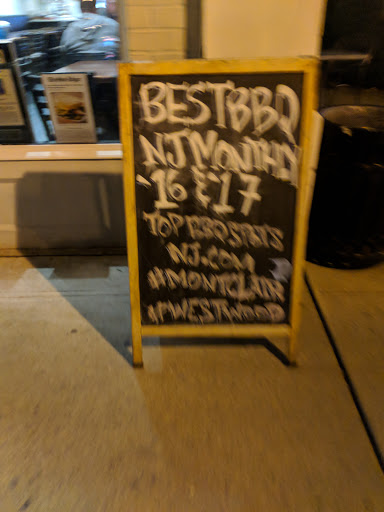 BEST BBQ
NJ MONTHLY
'16 & '17
TOP BBQ SPOTS
NJ.COM
#MONTCLAIR
#WESTWOOD